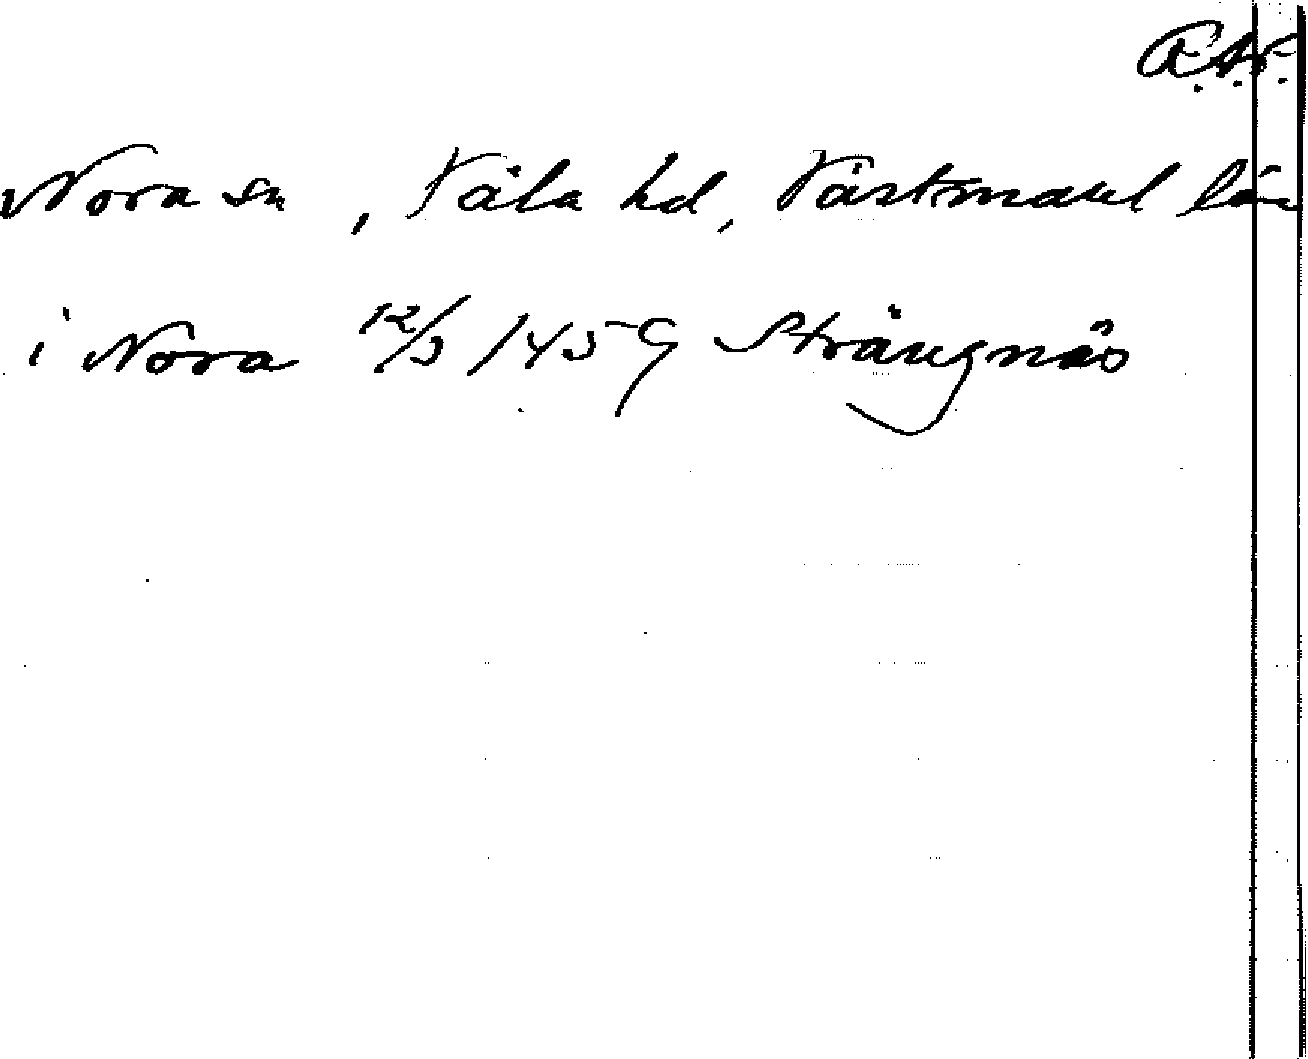 Nora sn, Våla hd, Västmanl län
i Nora 12/3 1459 Strängnäs